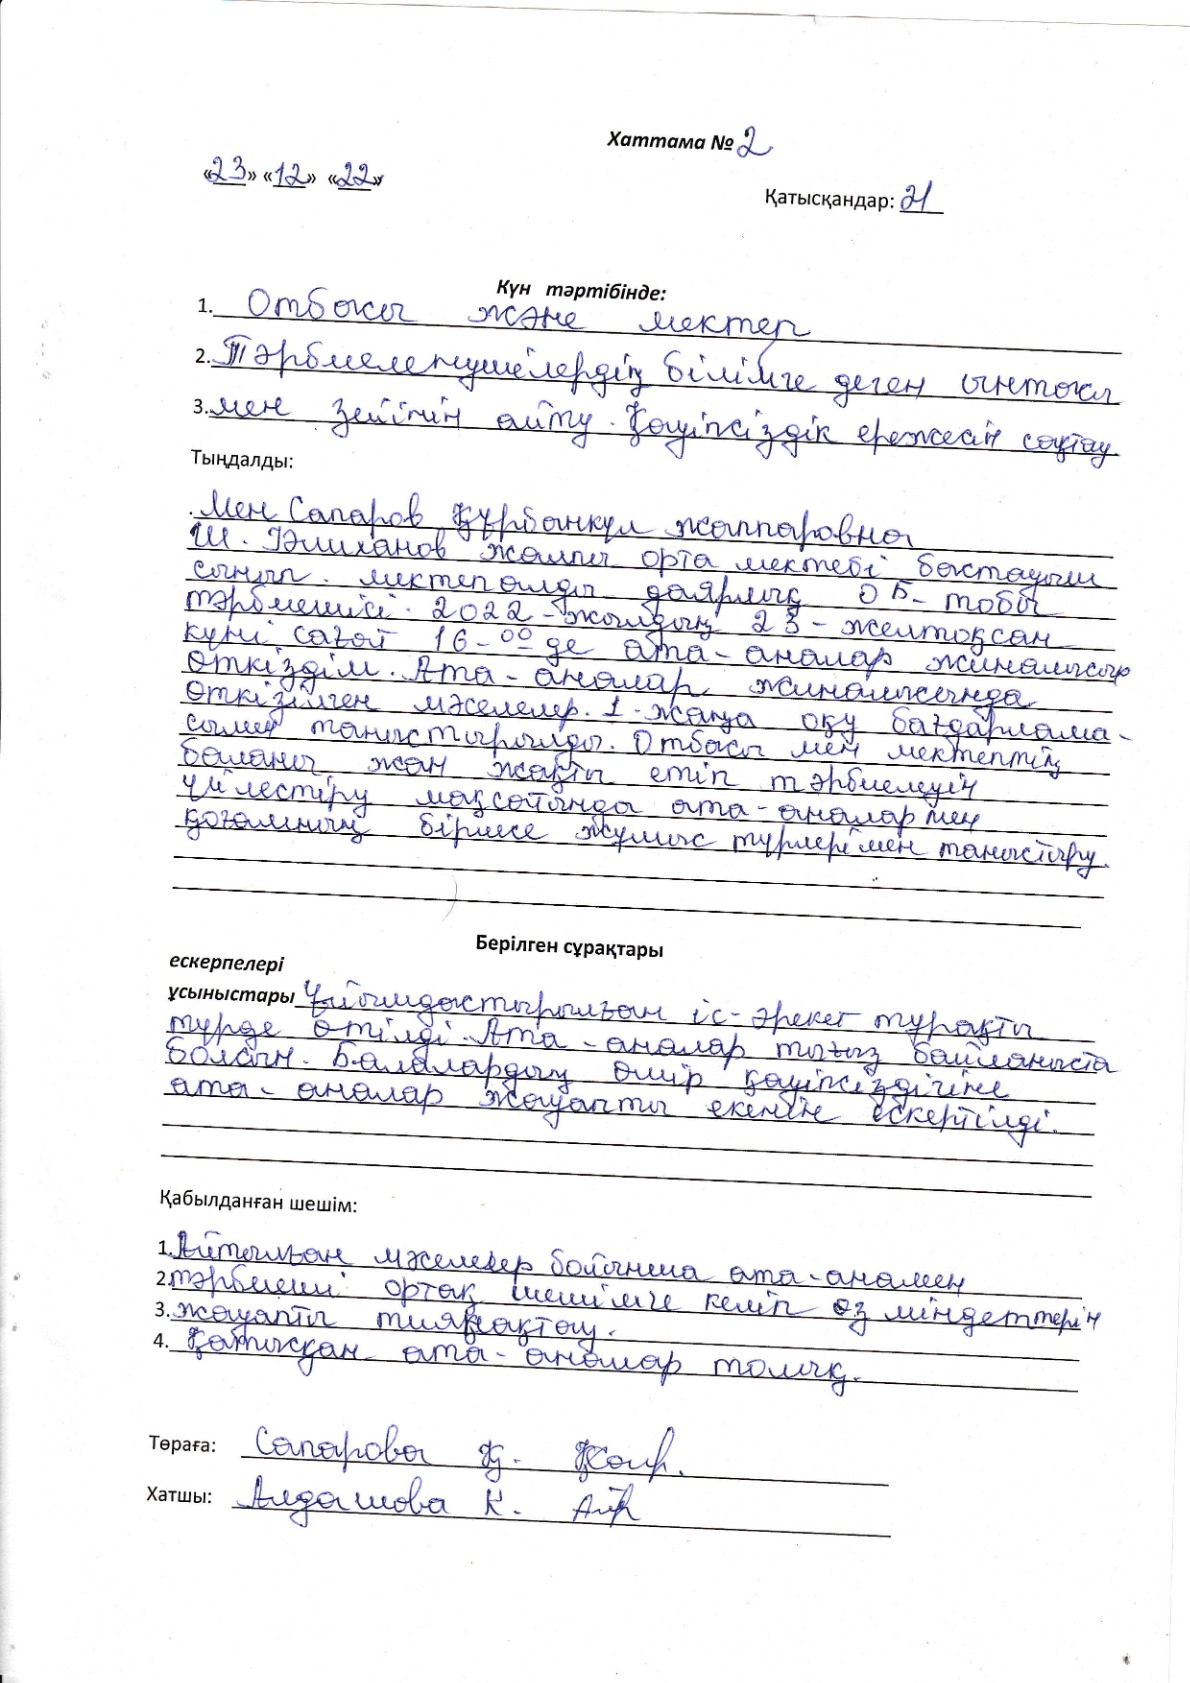 Хаттама № 2
«23» «12» «22»
Қатысқандар: 21
Күн тәртібінде:
1. Отбасы және мектеп
2. Тәрбиеленушілердің білімге деген ынтасы
3. мен зейінін айту. Қауіпсіздік ережесін сақтау
Тыңдалды:
. Мен Сапаров Құрбанкүл жаппаровна
Ш. Уәлиханов жалпы орта мектебі бастауыш
сынып. мектепалды даярлық 0 Б- тобы
тәрбиешісі. 2022-жылдың 23-желтоқсан
күні сағат 16-00 де ата-аналар жиналысын
өткіздім. Ата-аналар жиналысында
өткізілген мәселелер. 1-жаңа оқу бағдарлама-
сымен таныстырылды. Отбасы мен мектептің
баланы жан жақты етіп тәрбиелеуін
үйлестіру мақсатында ата-аналармен
қоғамның бірлесе жұмыс түрлерімен таныстыру.
Берілген сұрақтары
ескерпелері
ұсыныстары Ұйымдастырылған іс-әрекет тұрақты
түрде өтілді. Ата-аналар тығыз байланыста
болсын. Балалардың өмір қауіпсіздігіне
ата-аналар жауапты екенін ескертілді.
Қабылданған шешім:
1. Айтылған мәселелер бойынша ата-анамен
2. тәрбиеші ортақ шешімге келіп өз міндеттерін
3. жауапты
4. Қатысқан ата-аналар толық.
Төраға: Сапарова Қ.
Хатшы: Алдашова К.